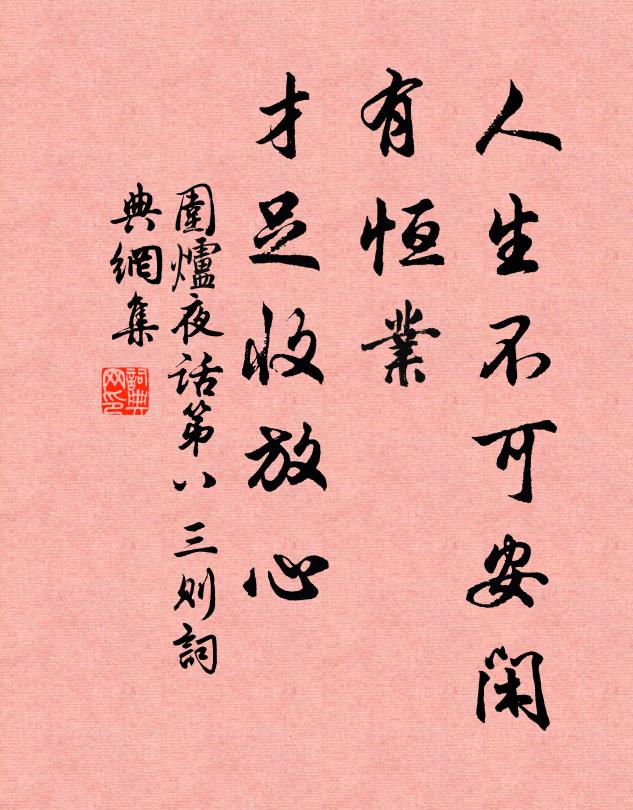 人生不可安閑
有恒業
才足收放心
圍爐夜話第八三則詞
典網集
詞典
网印